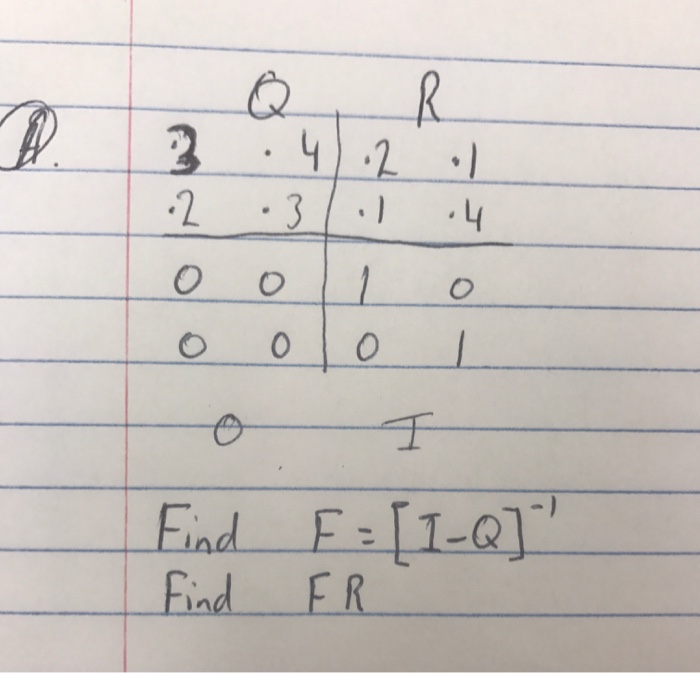 Q R
A. .3 .4 .2 .1
.2 .3 .1 .4
0 0 1 0
0 0 0 1
0 I
Find F = [I-Q]⁻¹
Find FR